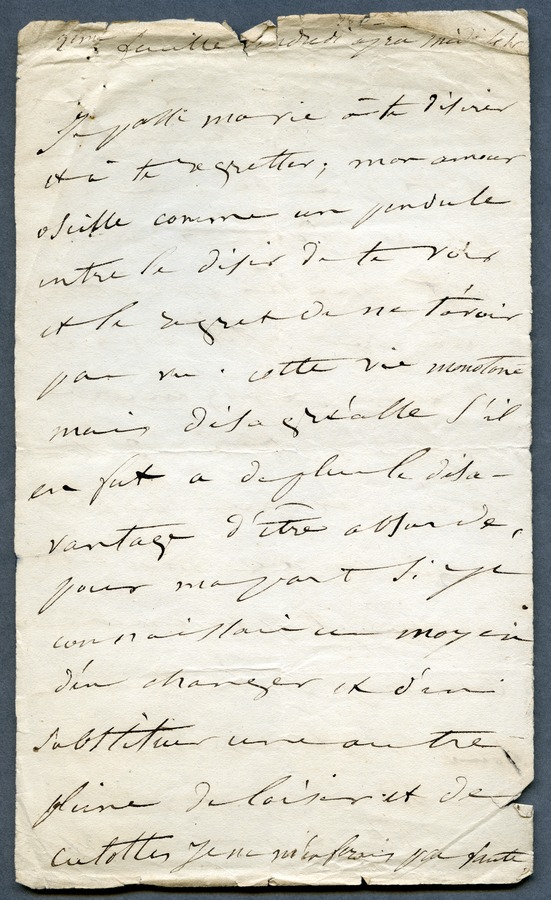 2eme feuille vendredi après midi
Je passe ma vie à te désirer
et à te regretter; mon amour
oscille comme un pendule
entre le désir de te voir
et le regret de ne t'avoir
pas vu. cette vie monotone
mais désagréable s'il
en fut a de plus le désa-
vantage d'être absurde,
pour ma part si je
connaissais un moyen
d'en changer et d'en
substituer une autre
pleine de loisir et de
culottes je ne m'en ferais pas faute